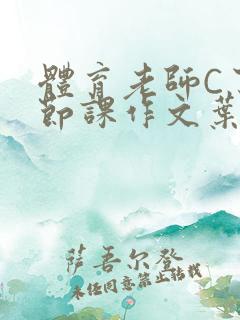 體育老師C了
節課作文葉
薩吾尔登
未任同意禁止转载